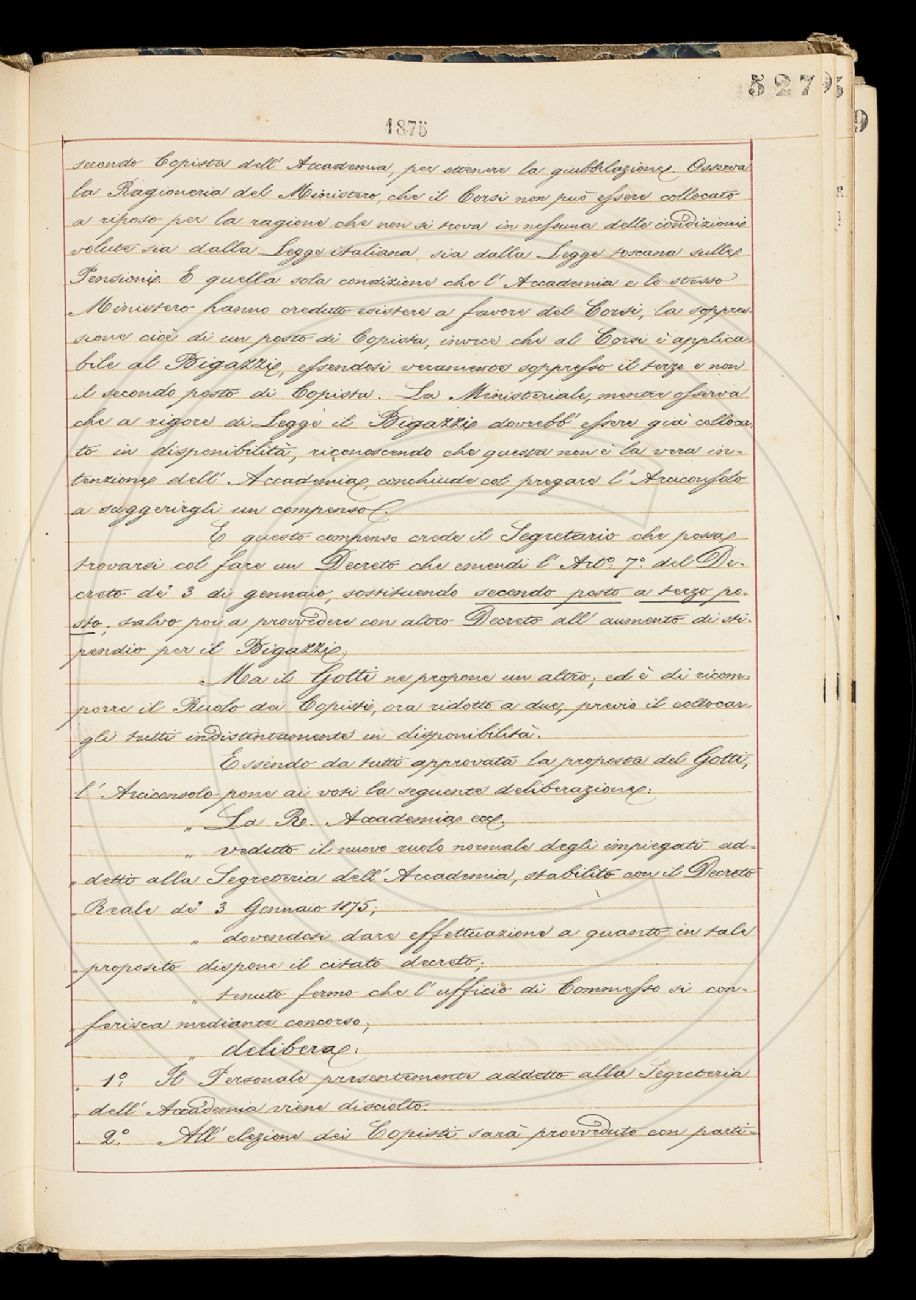 527
1875
secondo Copista dell'Accademia, per ottenere la giubbilazione. Osserva
la Ragioneria del Ministero, che il Corsi non può essere collocato
a riposo per la ragione che non si trova in nessuna delle condizioni
volute sia dalla Legge italiana, sia dalla Legge toscana sulle
Pensioni. E quella sola condizione che l'Accademia e lo stesso
Ministero hanno creduto esistere a favore del Corsi, la soppres-
sione cioè di un posto di Copista, invece che al Corsi è applica-
bile al Bigazzi, essendosi veramente soppresso il terzo e non
il secondo posto di Copista. La Ministeriale, mentre osserva
che a rigore di Legge il Bigazzi dovrebb'essere già colloca-
to in disponibilità, riconoscendo che questa non è la vera in-
tenzione dell'Accademia, conchiude col pregare l'Arciconsolo
a suggerirgli un compenso.
E questo compenso crede il Segretario che possa
trovarsi col fare un Decreto che emendi l'Art.° 7.° del De-
creto de' 3 di gennaio, sostituendo secondo posto a terzo po-
sto; salvo poi a provvedere con altro Decreto all'aumento di sti-
pendio per il Bigazzi.
Ma il Gotti ne propone un altro; ed è di ricom-
porre il Ruolo dei Copisti, ora ridotto a due, previo il collocar-
gli tutti indistintamente in disponibilità.
Essendo da tutti approvata la proposta del Gotti,
l'Arciconsolo pone ai voti la seguente deliberazione:
„ La R. Accademia ecc.
„ veduto il nuovo ruolo normale degli impiegati ad-
„ detti alla Segreteria dell'Accademia, stabilito con il Decreto
„ Reale de' 3 Gennaio 1875;
„ dovendosi dare effettuazione a quanto in tale
„ proposito dispone il citato decreto;
„ tenuto fermo che l'ufficio di Commesso si con-
„ ferisca mediante concorso;
„ delibera:
„ 1.° Il Personale presentemente addetto alla Segreteria
„ dell'Accademia viene disciolto.
„ 2.° All'elezione dei Copisti sarà provveduto con parti-